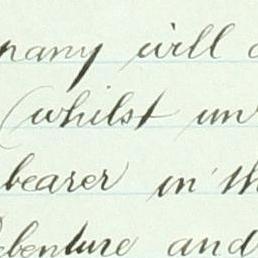 pany will
(whilst un
bearer in th
ebenture and